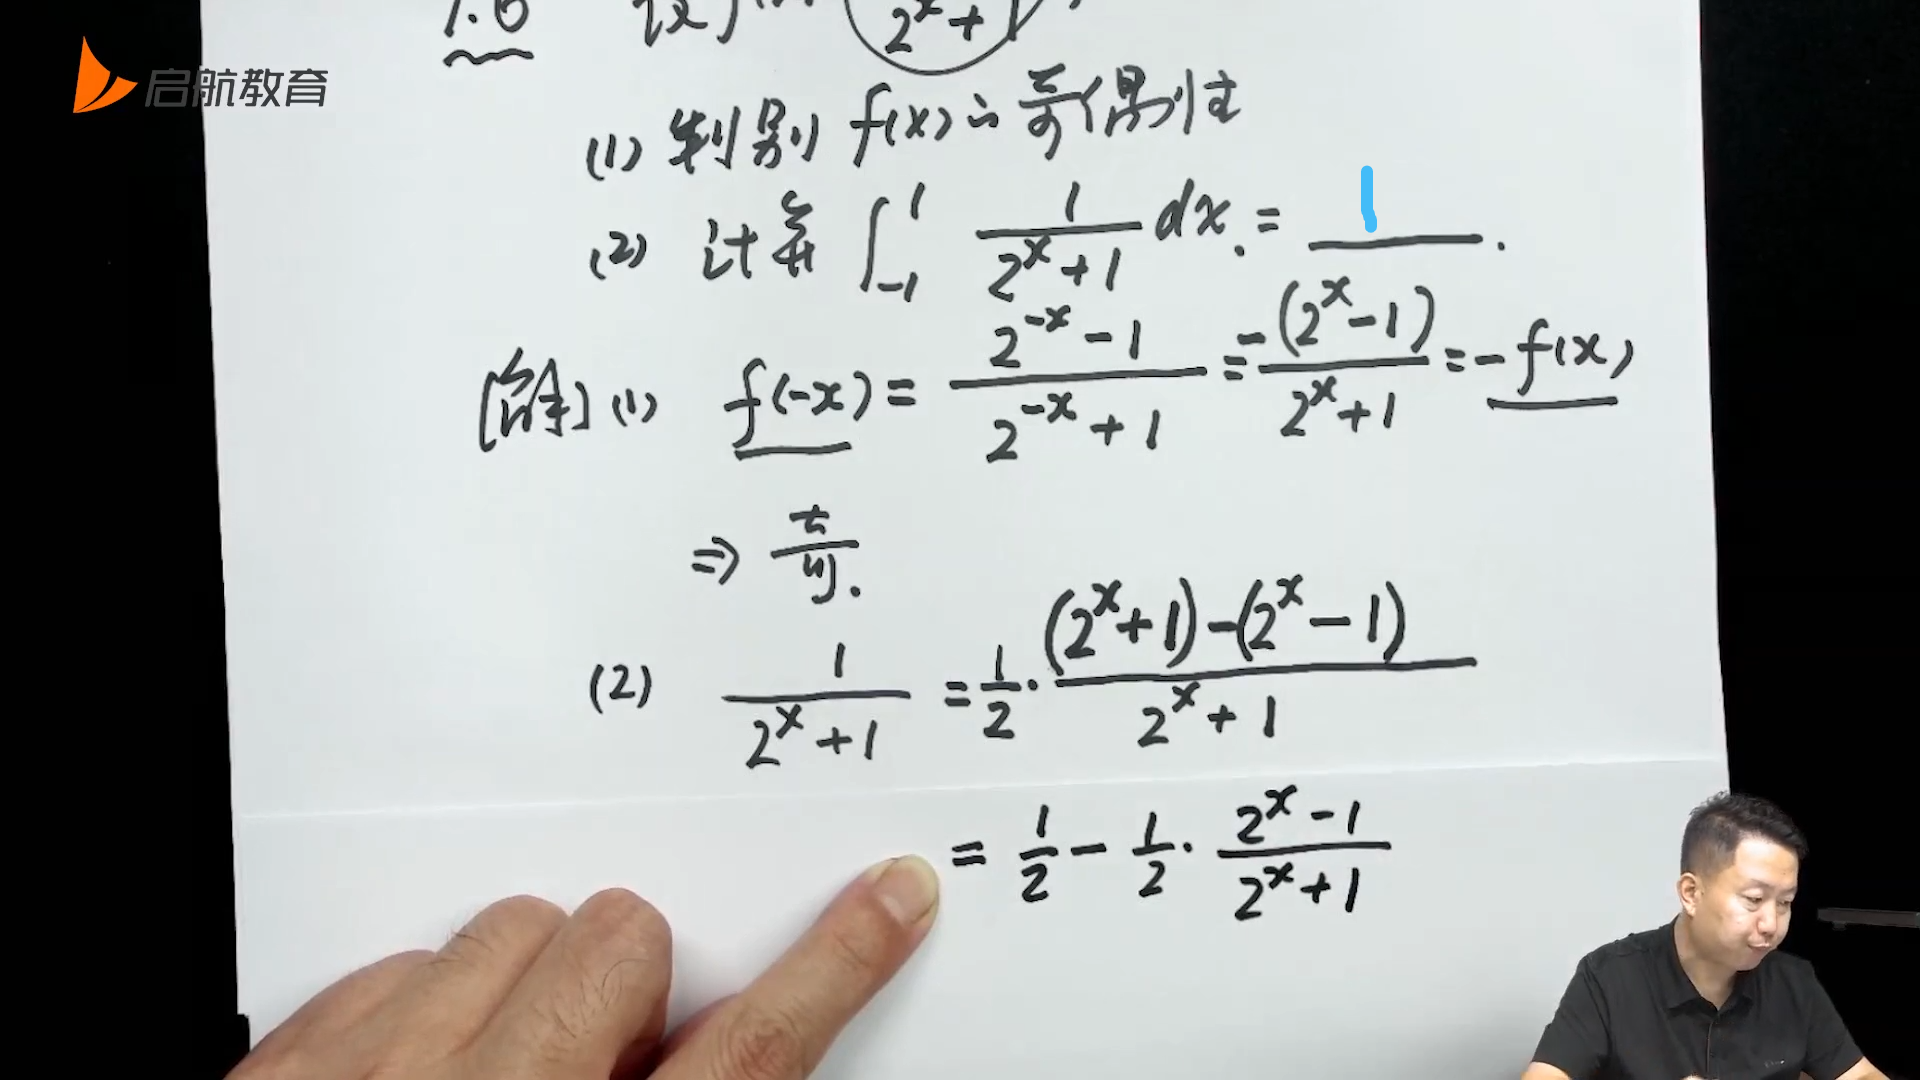 启航教育
1.6 设 f(x) 2^x+1
(1) 判别 f(x) 的奇偶性
(2) 计算 ∫_{-1}^{1} 1/(2^x+1) dx. = 1 .
[解] (1) f(-x) = (2^{-x}-1)/(2^{-x}+1) = -(2^x-1)/(2^x+1) = -f(x)
⇒ 奇.
(2) 1/(2^x+1) = 1/2 · ((2^x+1)-(2^x-1))/(2^x+1)
= 1/2 - 1/2 · (2^x-1)/(2^x+1)